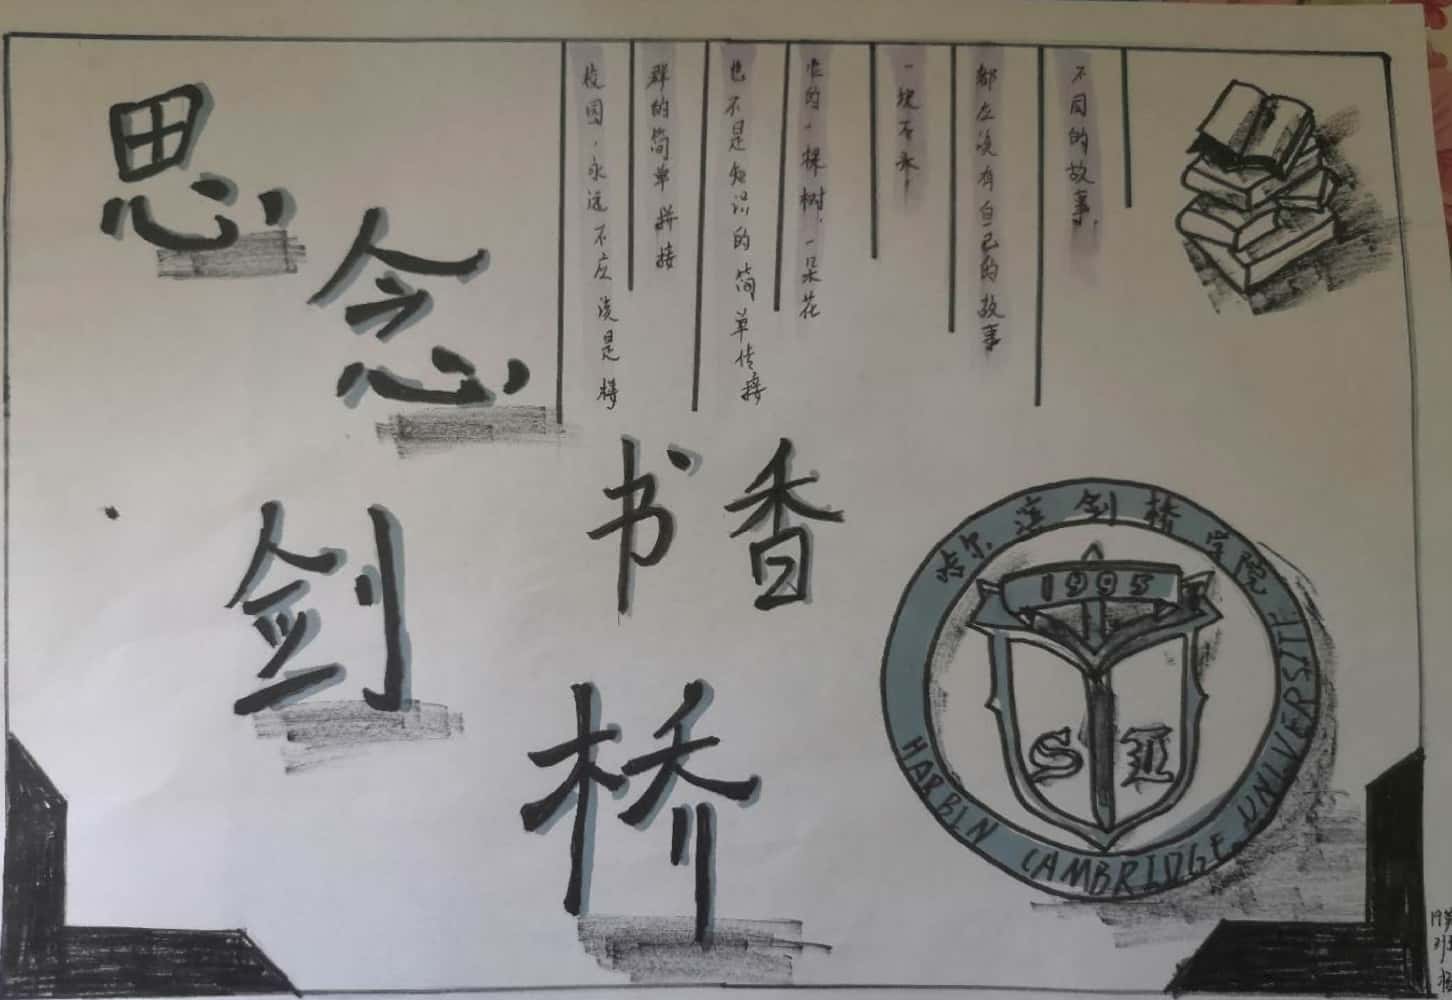 思念
剑
书香
桥
校园，永远不应该是楼
群的简单拼接
也不是知识的简单传接
的一棵树，一朵花
一块石
都应该有自己的故事
不同的故事，
哈尔滨剑桥学院
1995
HARBIN CAMBRIDGE UNIVERSITY
19
班